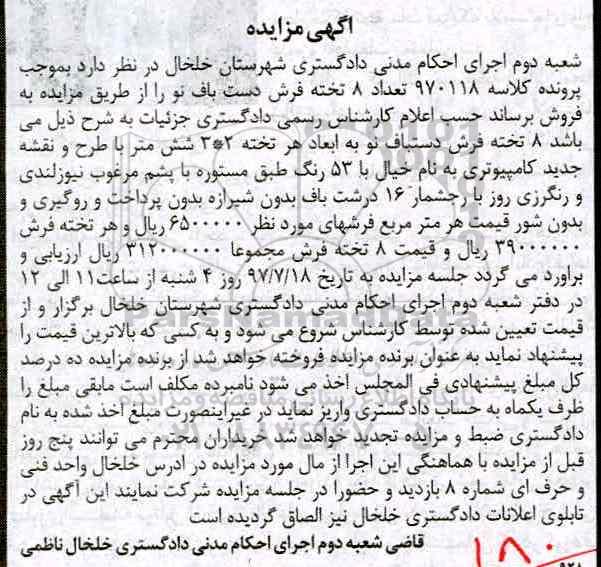 آگهی مزایده
شعبه دوم اجرای احکام مدنی دادگستری شهرستان خلخال در نظر دارد بموجب
پرونده کلاسه ۹۷۰۱۱۸ تعداد ۸ تخته فرش دست باف نو را از طریق مزایده به
فروش برساند حسب اعلام کارشناس رسمی دادگستری جزئیات به شرح ذیل می
باشد ۸ تخته فرش دستباف نو به ابعاد هر تخته ۲*۳ شش متر با طرح و نقشه
جدید کامپیوتری به نام خیال با ۵۳ رنگ طبق مستوره با پشم مرغوب نیوزلندی
و رنگرزی روز با رجشمار ۱۶ درشت باف بدون شیرازه بدون پرداخت و روگیری و
بدون شور قیمت هر متر مربع فرشهای مورد نظر ۶۵۰۰۰۰۰ ریال و هر تخته فرش
۳۹۰۰۰۰۰۰ ریال و قیمت ۸ تخته فرش مجموعا ۳۱۲۰۰۰۰۰۰ ریال ارزیابی و
براورد می گردد جلسه مزایده به تاریخ ۹۷/۷/۱۸ روز ۴ شنبه از ساعت۱۱ الی ۱۲
در دفتر شعبه دوم اجرای احکام مدنی دادگستری شهرستان خلخال برگزار و از
قیمت تعیین شده توسط کارشناس شروع می شود و به کسی که بالاترین قیمت را
پیشنهاد نماید به عنوان برنده مزایده فروخته خواهد شد از برنده مزایده ده درصد
کل مبلغ پیشنهادی فی المجلس اخذ می شود نامبرده مکلف است مابقی مبلغ را
ظرف یکماه به حساب دادگستری واریز نماید در غیراینصورت مبلغ اخذ شده به نام
دادگستری ضبط و مزایده تجدید خواهد شد خریداران محترم می توانند پنج روز
قبل از مزایده با هماهنگی این اجرا از مال مورد مزایده در ادرس خلخال واحد فنی
و حرف ای شماره ۸ بازدید و حضورا در جلسه مزایده شرکت نمایند این آگهی در
تابلوی اعلانات دادگستری خلخال نیز الصاق گردیده است
قاضی شعبه دوم اجرای احکام مدنی دادگستری خلخال ناظمی
۱۸۰